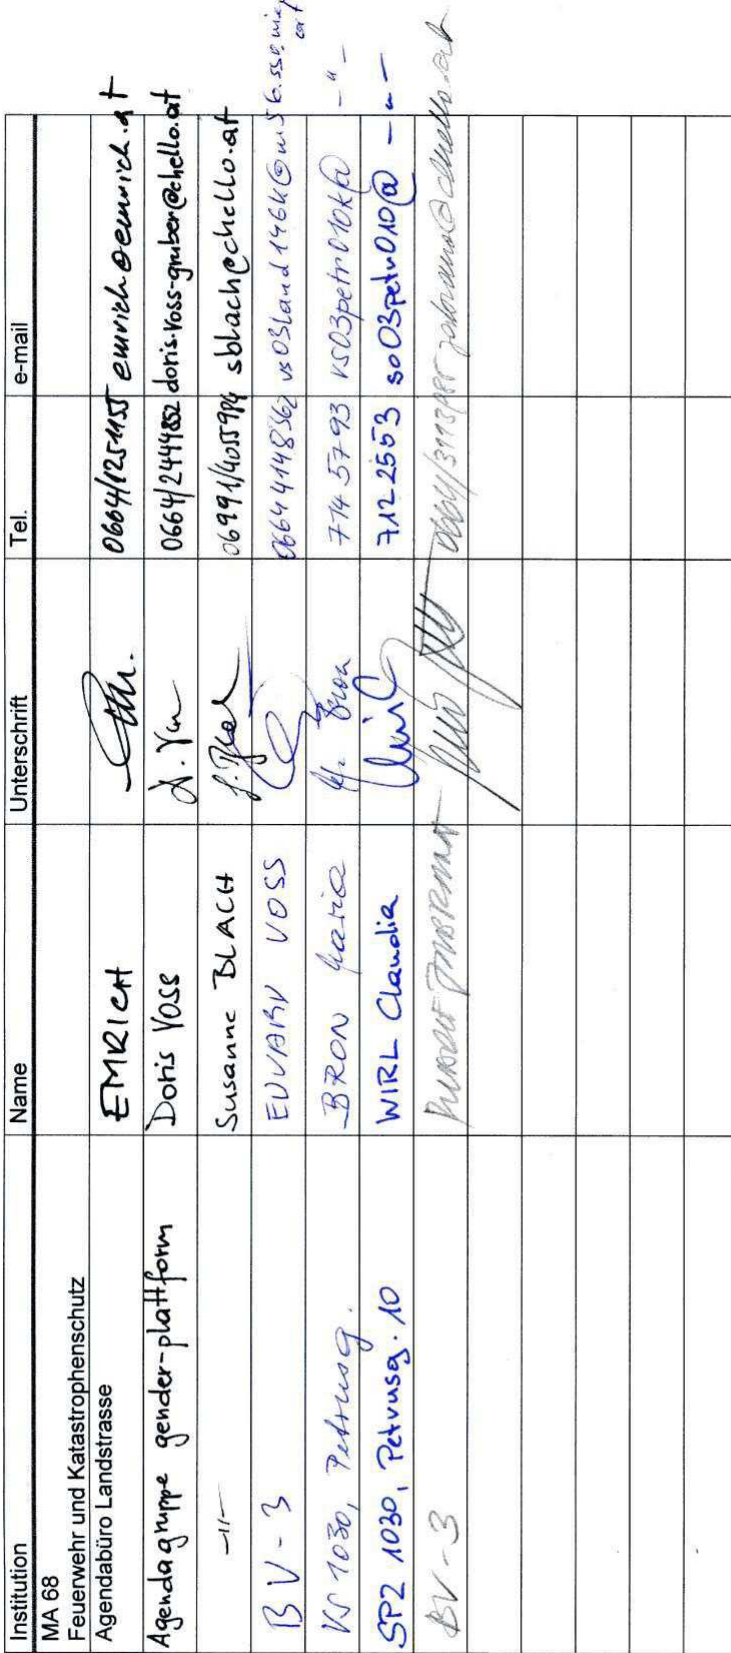 Institution Name Unterschrift Tel. e-mail
MA 68
Feuerwehr und Katastrophenschutz
Agendabüro Landstrasse EMRICH 0664/1251155 emrich@emrich.at
Agendagruppe gender-plattform Doris Voss D. Voss 0664/2444852 doris.voss-gruber@chello.at
-"- Susanne BLACH S. Blach 06991/4055984 sblach@chello.at
BV-3 EDVARD VOSS 0664 4148562 vs03land146k@m56.ssr.wien
VS 1030, Petrusg. BRON Maria Bron 714 5793 vs03petr010k@ -"-
SPZ 1030, Petrusg. 10 WIRL Claudia 712 2553 so03petr010@ -"-
BV-3